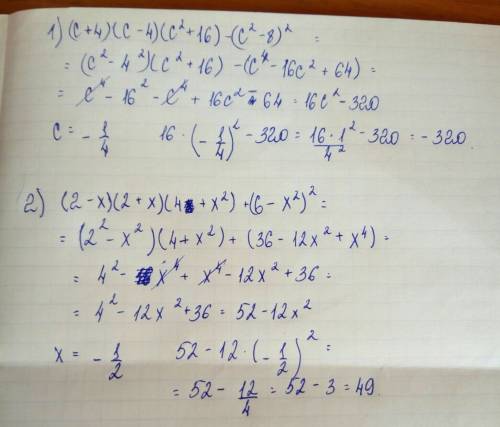 1) (c+4)(c-4)(c²+16) - (c²-8)² =
= (c²-4²)(c²+16) - (c⁴-16c²+64) =
= c⁴ - 16² - c⁴ + 16c² - 64 = 16c² - 320
c = -1/4   16 · (-1/4)² - 320 = 16·1²/4² - 320 = -320
2) (2-x)(2+x)(4+x²) + (6-x²)² =
= (2²-x²)(4+x²) + (36-12x²+x⁴) =
= 4² - x⁴ + x⁴ - 12x² + 36 =
= 4² - 12x² + 36 = 52 - 12x²
x = -1/2   52 - 12 · (-1/2)² =
= 52 - 12/4 = 52 - 3 = 49.